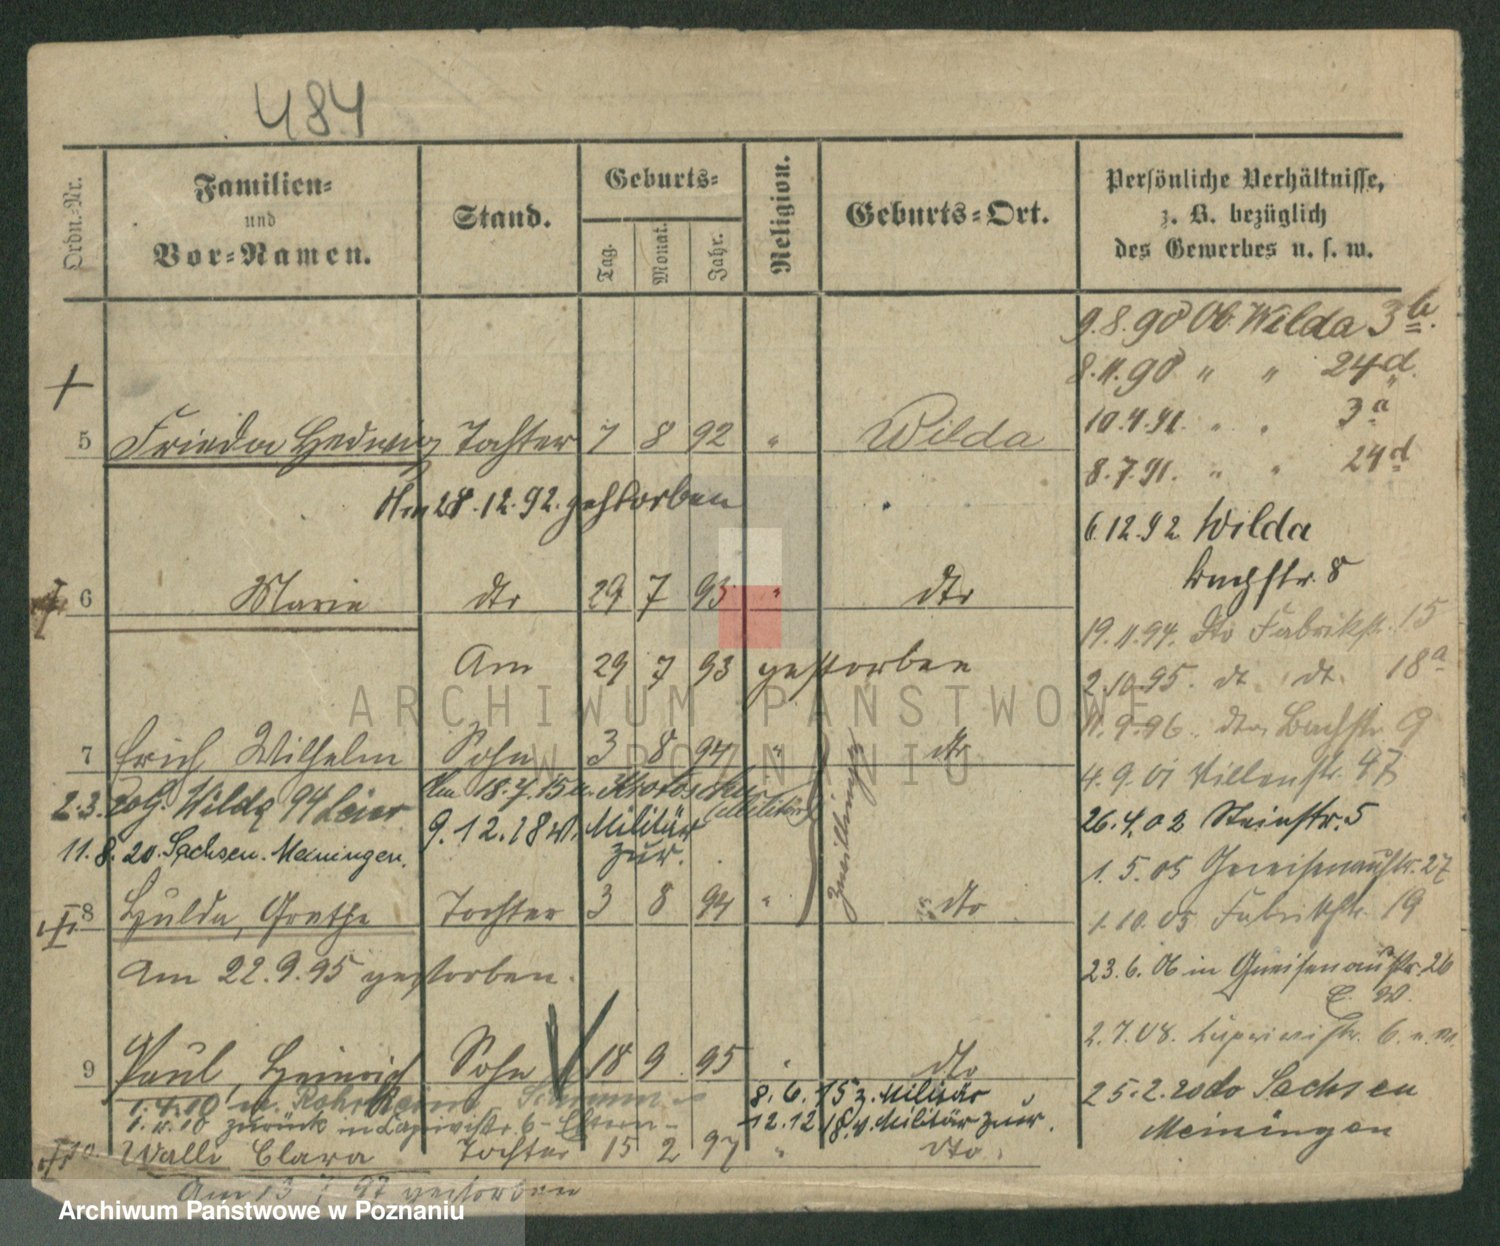 484
Ordn.-Nr.
Familien-
und
Vor-Namen.
Stand.
Geburts-
Tag.
Monat.
Jahr.
Religion.
Geburts-Ort.
Persönliche Verhältnisse,
z. B. bezüglich
des Gewerbes u. s. w.
9.8.90 Ob. Wilda 3b.
8.11.90 " " 24d.
10.4.91. " " 3a
5 Frieda Hedwig Tochter 7 8 92 " Wilda
8.7.91. " " 24d
Am 28.12.92. gestorben
6.12.92 Wilda
Bachstr. 8
6 Marie dto 29 7 93 " dto
19.11.94. dto Fabrikstr. 15
Am 29 7 93 gestorben
2.10.95. dt. dt. 18a
11.9.96. dto Bachstr 9
7 Erich Wilhelm Sohn 3 8 94 " dto
4.9.01 Willenstr. 47
2.3. Wilda 94
Am 18.7.15 n. (Militär)
26.4.02 Steinstr. 5
9.12.18 v. Militär
zur.
11.8.20. Sachsen-Meiningen.
Zwillinge
1.5.05 Gneisenaustr. 27
8 Hulda, Grethe Tochter 3 8 94 " dto
1.10.05 Fabrikstr. 19
Am 22.9.95 gestorben.
23.6.06 in Gneisenaustr. 26
2.7.08. Caprivistr. 6
9 Paul, Heinrich Sohn 18 9 95 " dto
25.2.20 do Sachsen
Meiningen
8.6.15 z. Militär
12.12.18. v. Militär zur.
zurück in Caprivistr. 6 - Eltern -
10. Walli Clara Tochter 15 2 97 " dto.
Am 13 7 97 gestorben
ARCHIWUM PAŃSTWOWE
W POZNANIU
Archiwum Państwowe w Poznaniu